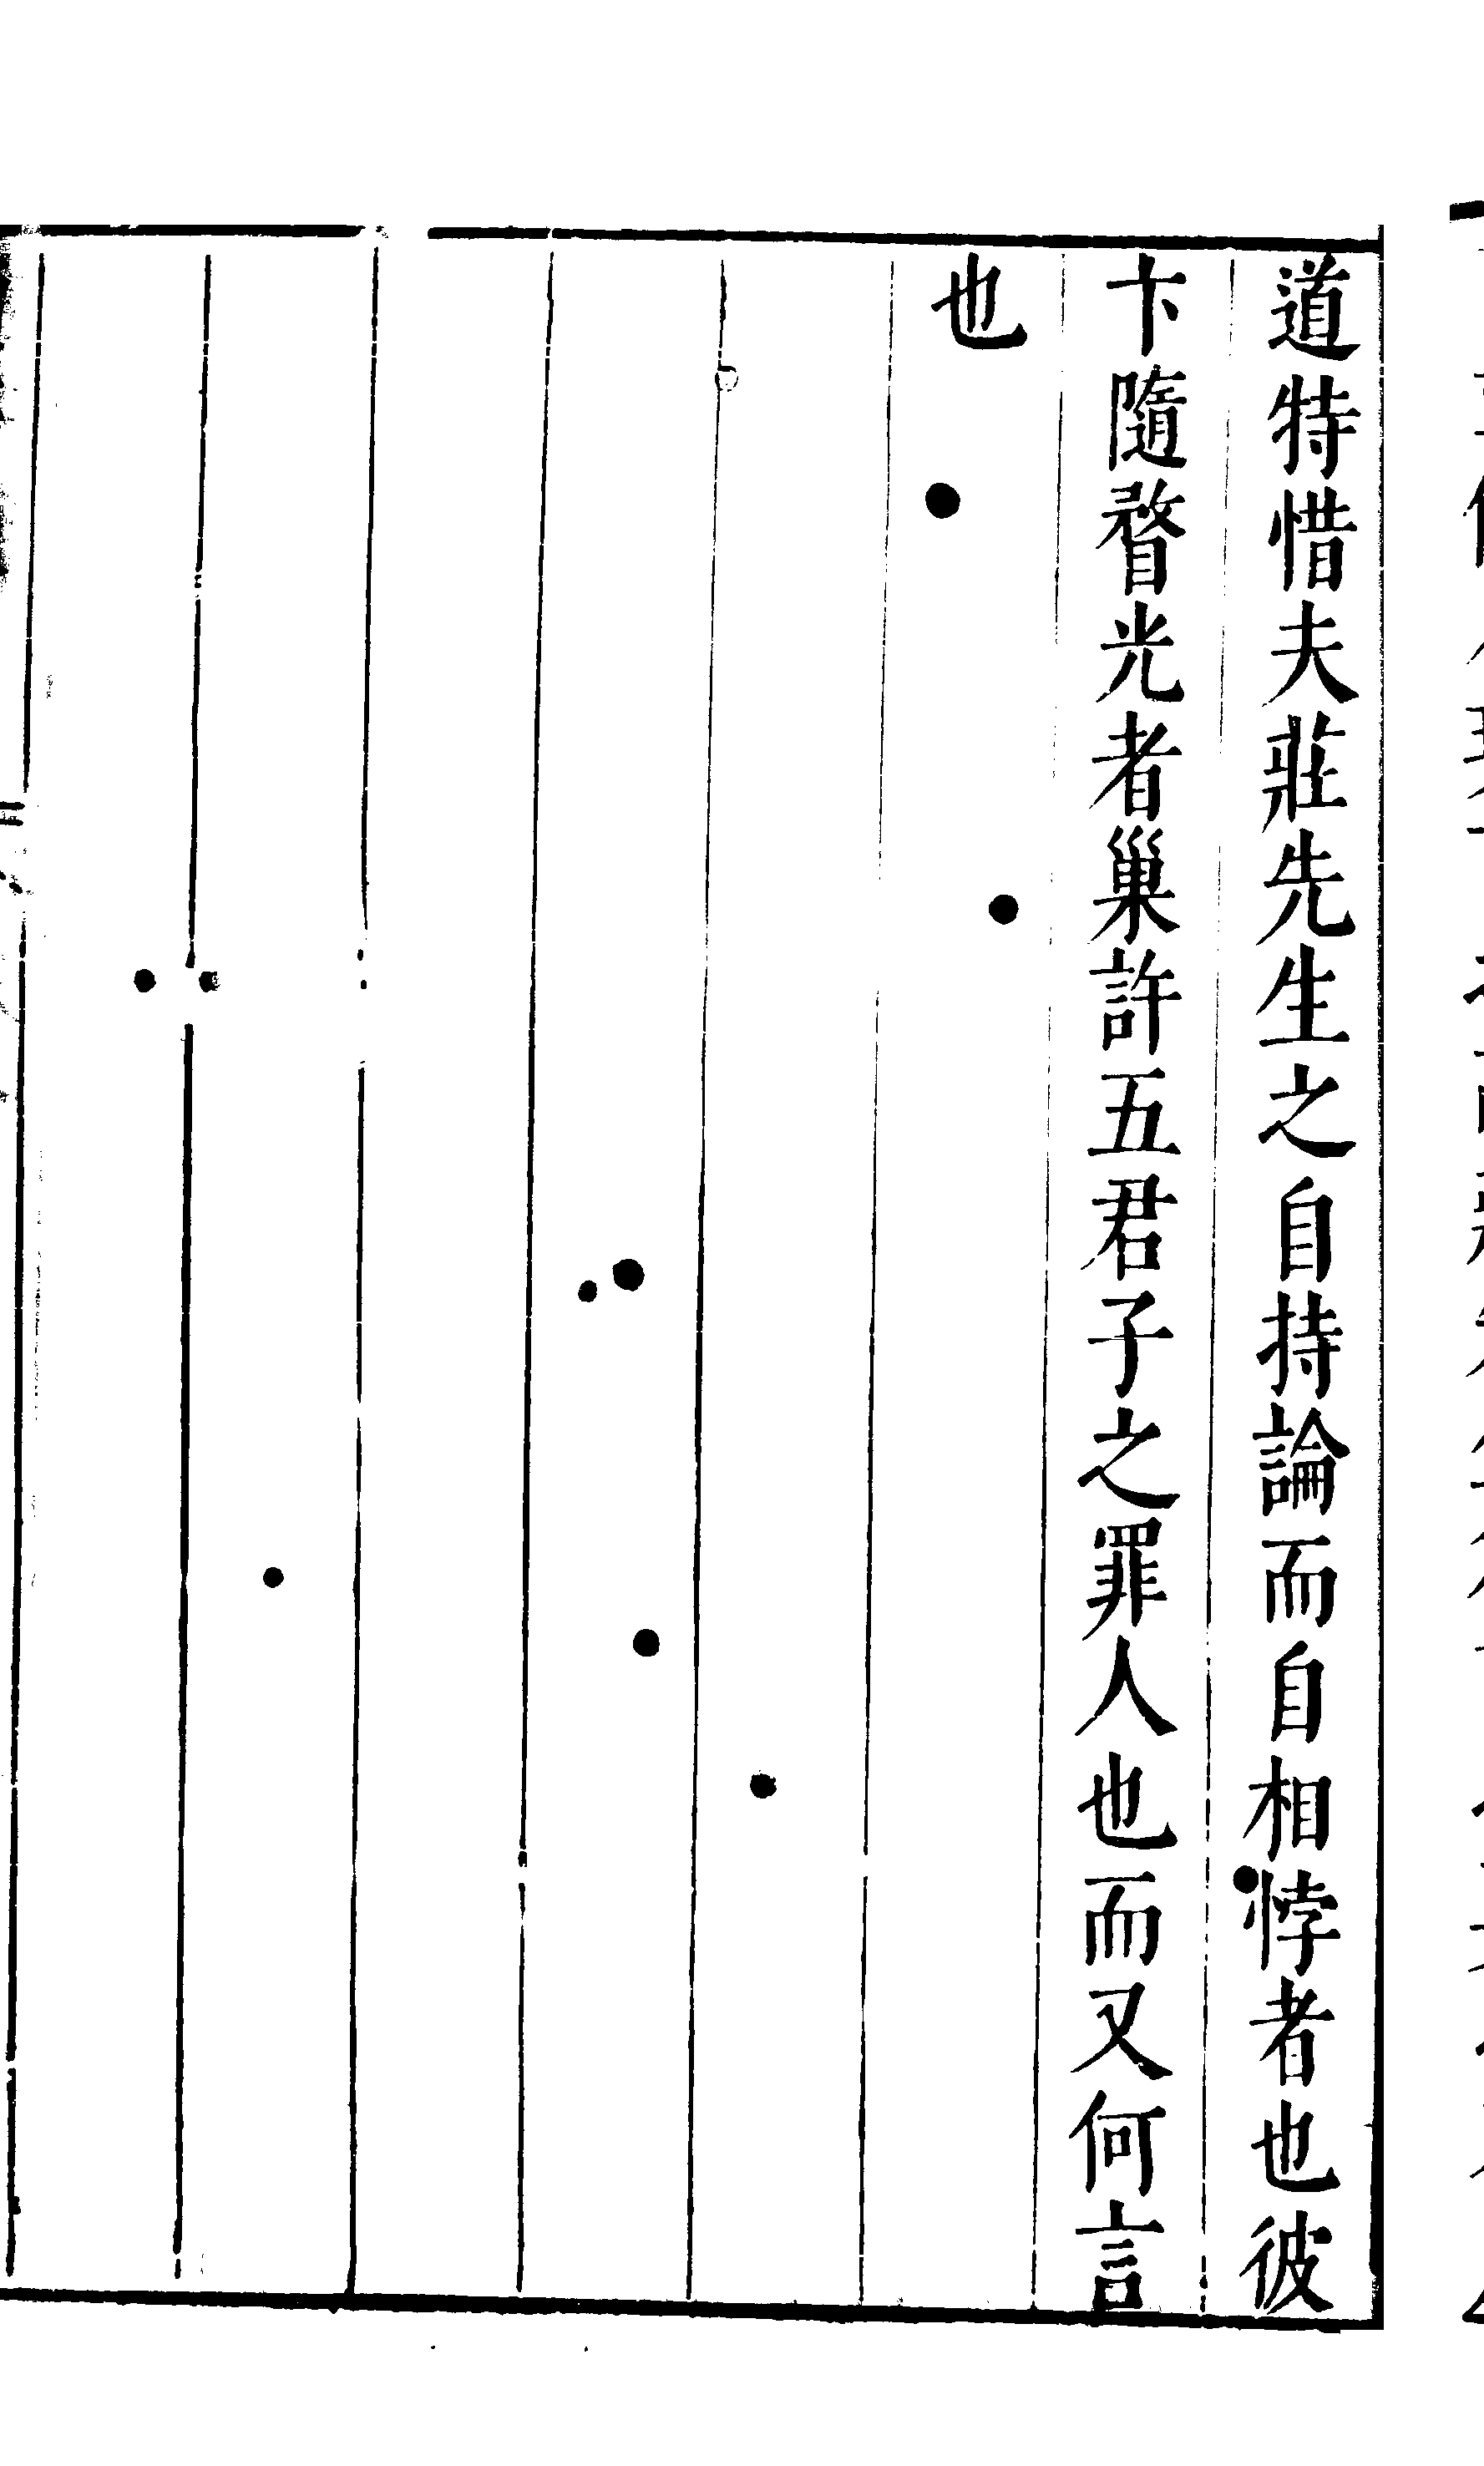 道特惜夫莊先生之自持論而自相悖者也彼
卞隨瞀光者巢許五君子之罪人也而又何言
也